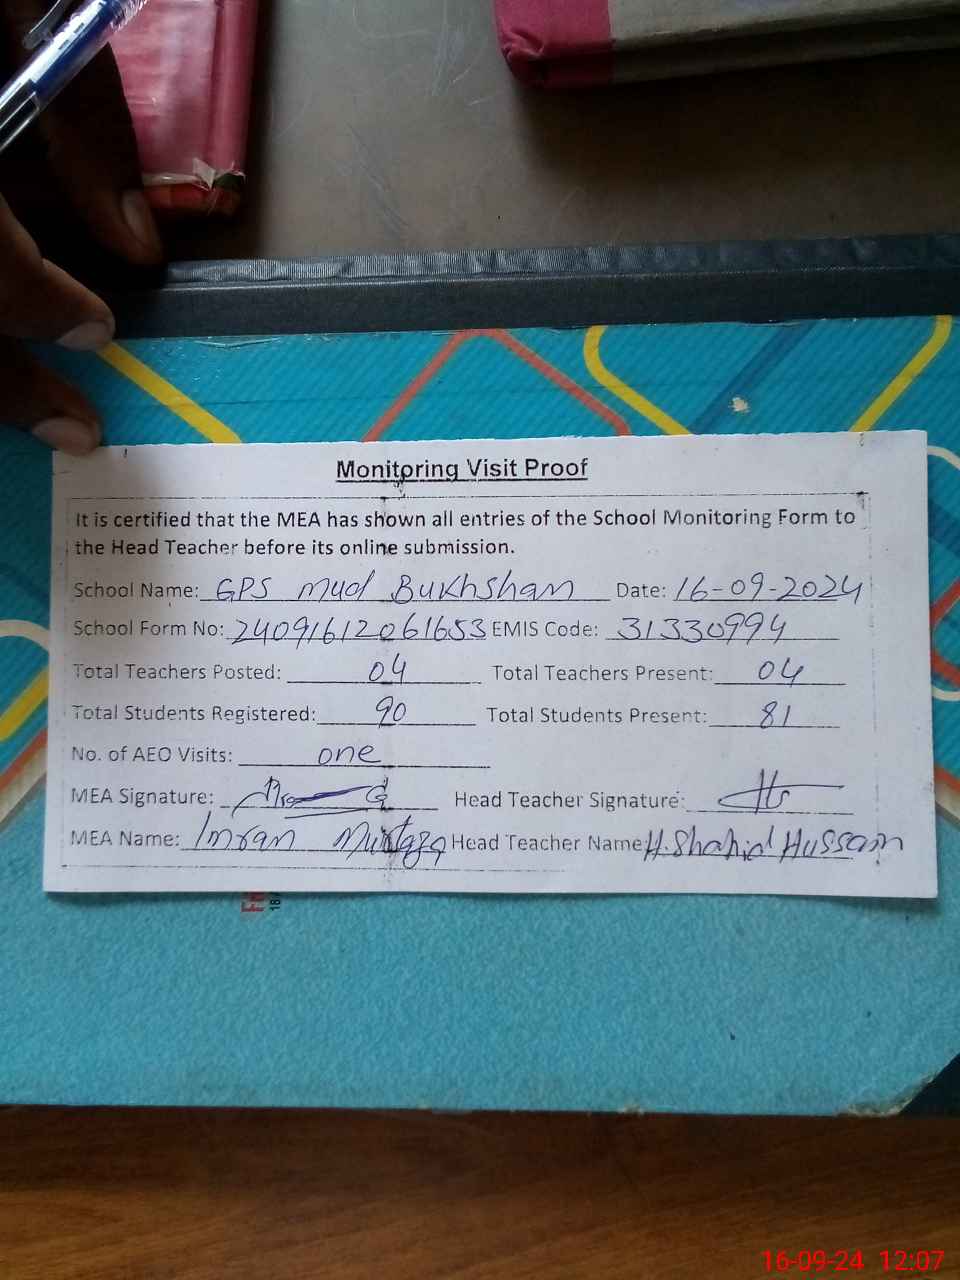 Monitoring Visit Proof
It is certified that the MEA has shown all entries of the School Monitoring Form to
the Head Teacher before its online submission.
School Name: GPS Mud Bukhshan Date: 16-09-2024
School Form No: 24091612061653 EMIS Code: 31330994
Total Teachers Posted: 04 Total Teachers Present: 04
Total Students Registered: 90 Total Students Present: 81
No. of AEO Visits: one
MEA Signature: Head Teacher Signature:
MEA Name: Imran Murtaza Head Teacher Name H. Shahid Hussain
16-09-24 12:07